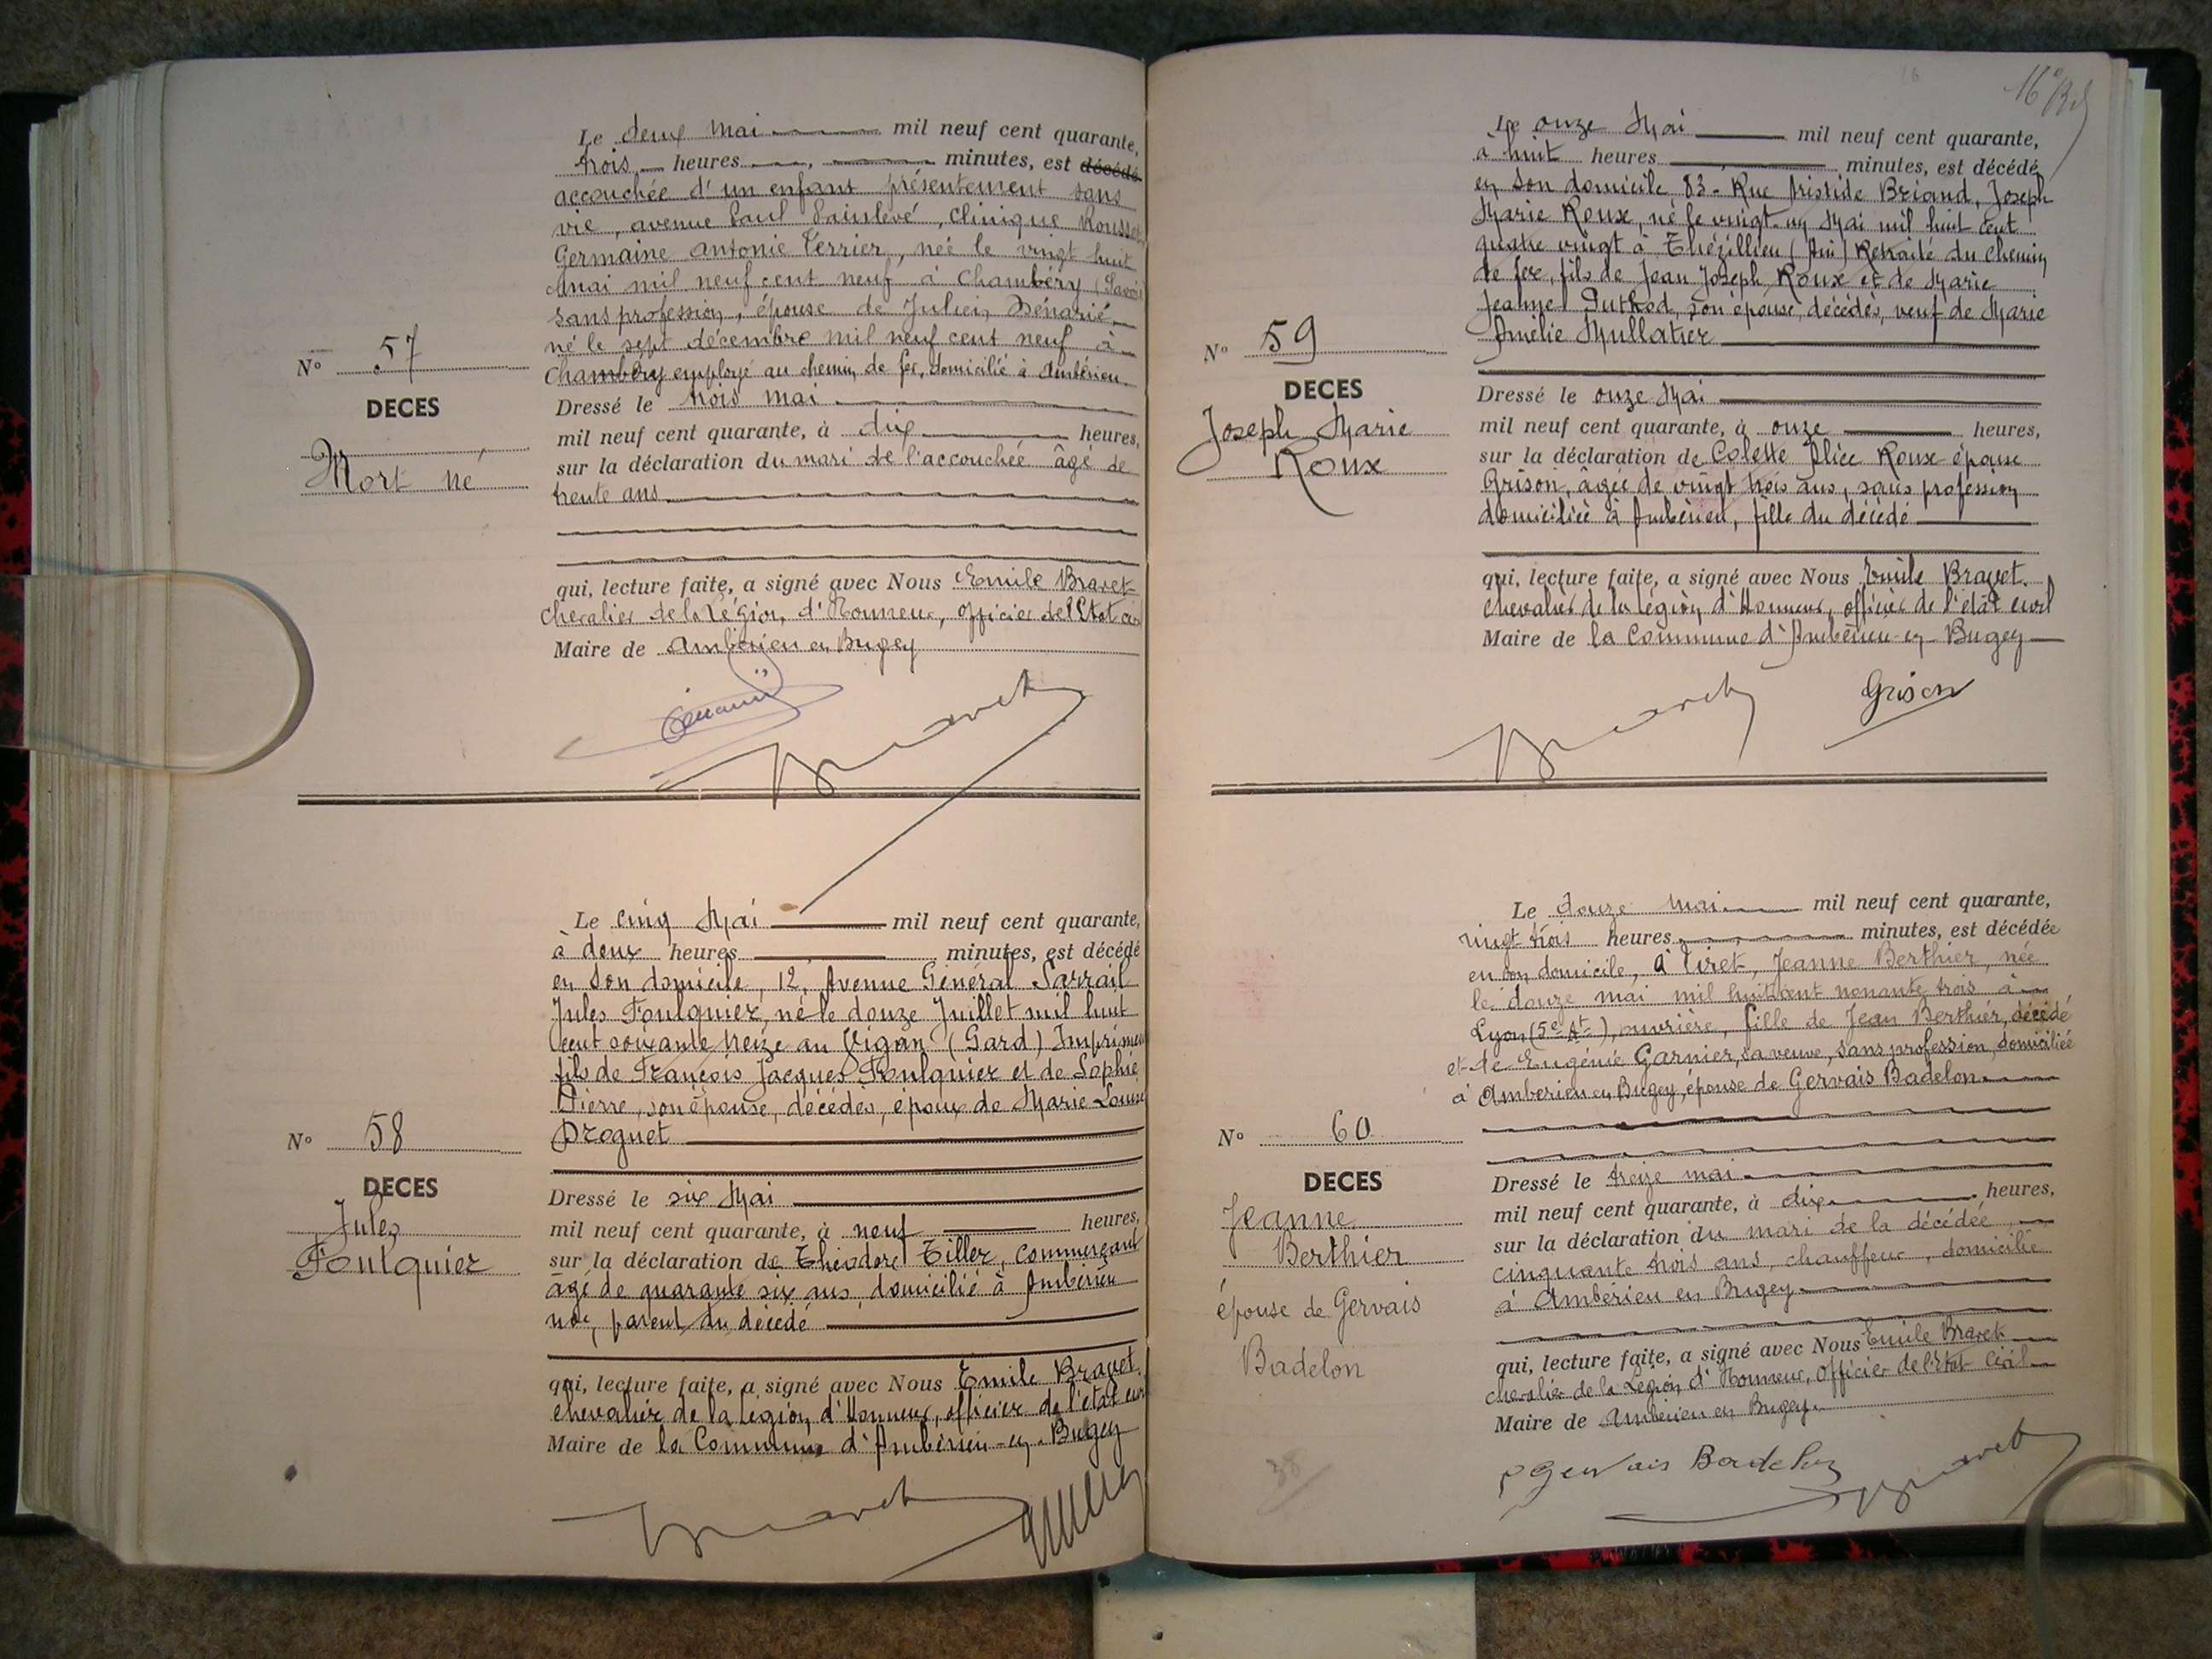 Le deux mai mil neuf cent quarante,
trois heures, minutes, est décédé
accouchée d'un enfant présentement sans
vie, avenue Paul Painlevé, Clinique Rousset
Germaine Antonie Terrier, née le vingt huit
mai mil neuf cent neuf à Chambéry (Savoie
sans profession, épouse de Julien Dénarié
né le sept décembre mil neuf cent neuf à
Chambéry employé au chemin de fer, domicilié à Ambérieu
N° 57
DECES
Mort né
Dressé le trois mai
mil neuf cent quarante, à dix heures,
sur la déclaration du mari de l'accouchée âgé de
trente ans
qui, lecture faite, a signé avec Nous Emile Bravet
chevalier de la Légion d'Honneur, officier de l'Etat ci
Maire de Ambérieu en Bugey
Bravet
Le cinq Mai mil neuf cent quarante,
à deux heures minutes, est décédé
en son domicile, 12, Avenue Général Sarrail
Jules Foulquier, né le douze Juillet mil huit
cent soixante treize au Vigan (Gard) Imprimeur
fils de François Jacques Foulquier et de Sophie
Pierre, son épouse, décédés, époux de Marie Louise
Droguet
N° 58
DECES
Jules
Foulquier
Dressé le six Mai
mil neuf cent quarante, à neuf heures,
sur la déclaration de Théodore Tiller, commerçant
âgé de quarante six ans, domicilié à Ambérieu
non parent du décédé
qui, lecture faite, a signé avec Nous Emile Bravet,
chevalier de la Légion d'Honneur, officier de l'état civil
Maire de la Commune d'Ambérieu-en-Bugey
Bravet
16e
Le onze Mai mil neuf cent quarante,
à huit heures minutes, est décédé
en son domicile 83 - Rue Aristide Briand, Joseph
Marie Roux, né le vingt-un Mai mil huit cent
quatre vingt à Thézillieu (Ain) Retraité du chemin
de fer, fils de Jean Joseph Roux et de Marie
Jeanne Duthod, son épouse, décédés, veuf de Marie
Amélie Mullatier
N° 59
DECES
Joseph Marie
Roux
Dressé le onze Mai
mil neuf cent quarante, à onze heures,
sur la déclaration de Colette Alice Roux épouse
Grison, âgée de vingt trois ans, sans profession
domiciliée à Ambérieu, fille du décédé
qui, lecture faite, a signé avec Nous Emile Bravet.
chevalier de la Légion d'Honneur, officier de l'état civil
Maire de la Commune d'Ambérieu-en-Bugey
Bravet Grison
Le douze mai mil neuf cent quarante,
vingt trois heures, minutes, est décédée
en son domicile, à Tiret, Jeanne Berthier, née
le douze mai mil huit cent nonante trois à
Lyon (5e At), ouvrière, fille de Jean Berthier, décédé
et de Eugénie Garnier, sa veuve, sans profession, domiciliée
à Ambérieu en Bugey, épouse de Gervais Badelon
N° 60
DECES
Jeanne
Berthier
épouse de Gervais
Badelon
Dressé le treize mai
mil neuf cent quarante, à dix heures,
sur la déclaration du mari de la décédée,
cinquante trois ans, chauffeur, domicilié
à Ambérieu en Bugey
qui, lecture faite, a signé avec Nous Emile Bravet
chevalier de la Légion d'Honneur, officier de l'Etat Civil
Maire de Ambérieu en Bugey
Gervais Badelon Bravet
38